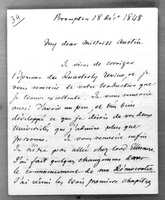 34
Brompton 18 Dec. 1848
My dear Mistress Austin
Je viens de corriger
l'épreuve du Quarterly Review, et je
vous remercie de votre traduction que
je trouve excellente. Je vous remercie
aussi d'avoir un peu et très bien
développé ce que je disais de vos deux
Universités que j'admire plus que
personne. Je vous remercie enfin
de
J'ai fait quelques changemens dans
le commencement de ma Démocratie
J'ai réuni les trois premiers chapitres